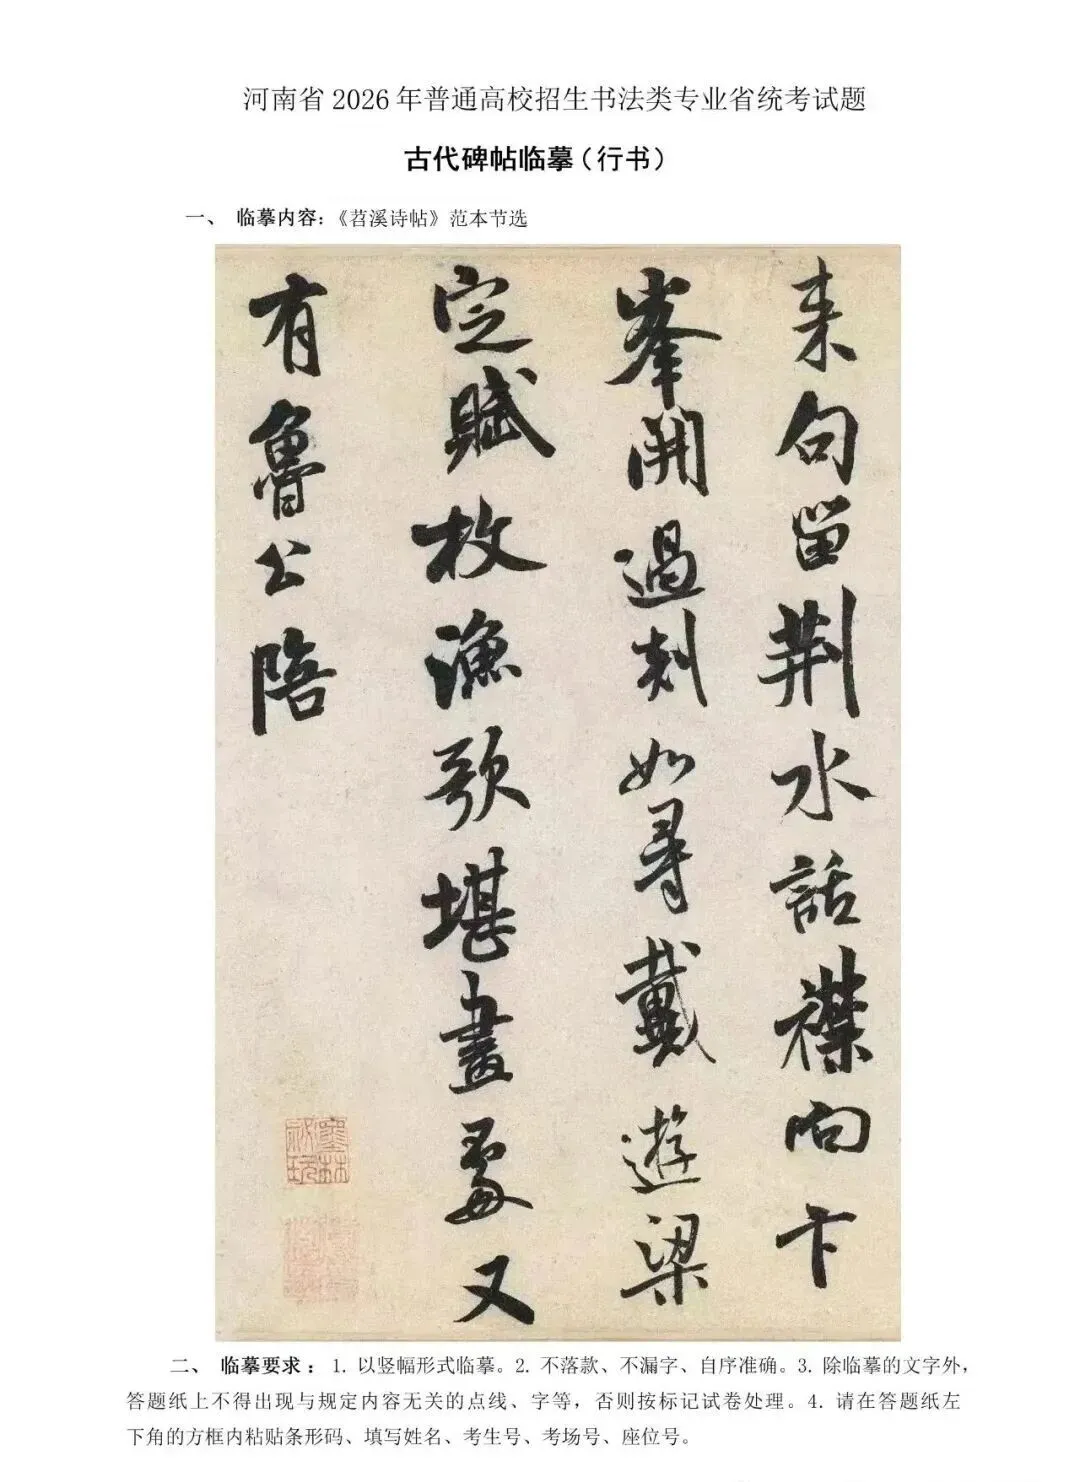 河南省2026年普通高校招生书法类专业省统考试题
古代碑帖临摹（行书）
一、 临摹内容：《苕溪诗帖》范本节选
来句留荆水话襟向卞
峯開過剡如尋戴遊梁
定賦枚漁歌堪畫處又
有魯公陪
二、 临摹要求： 1. 以竖幅形式临摹。2. 不落款、不漏字、自序准确。3. 除临摹的文字外，
答题纸上不得出现与规定内容无关的点线、字等，否则按标记试卷处理。4. 请在答题纸左
下角的方框内粘贴条形码、填写姓名、考生号、考场号、座位号。